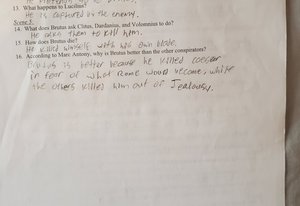 He pretends to be Brutus.
13. What happens to Lucilius?
He is captured by the enemy.
Scene 5
14. What does Brutus ask Clitus, Dardanius, and Volumnius to do?
He asks them to kill him.
15. How does Brutus die?
He killed himself with his own blade.
16. According to Marc Antony, why is Brutus better than the other conspirators?
Brutus is better because he killed caesar
in fear of what Rome would become, while
the others killed him out of Jealousy.